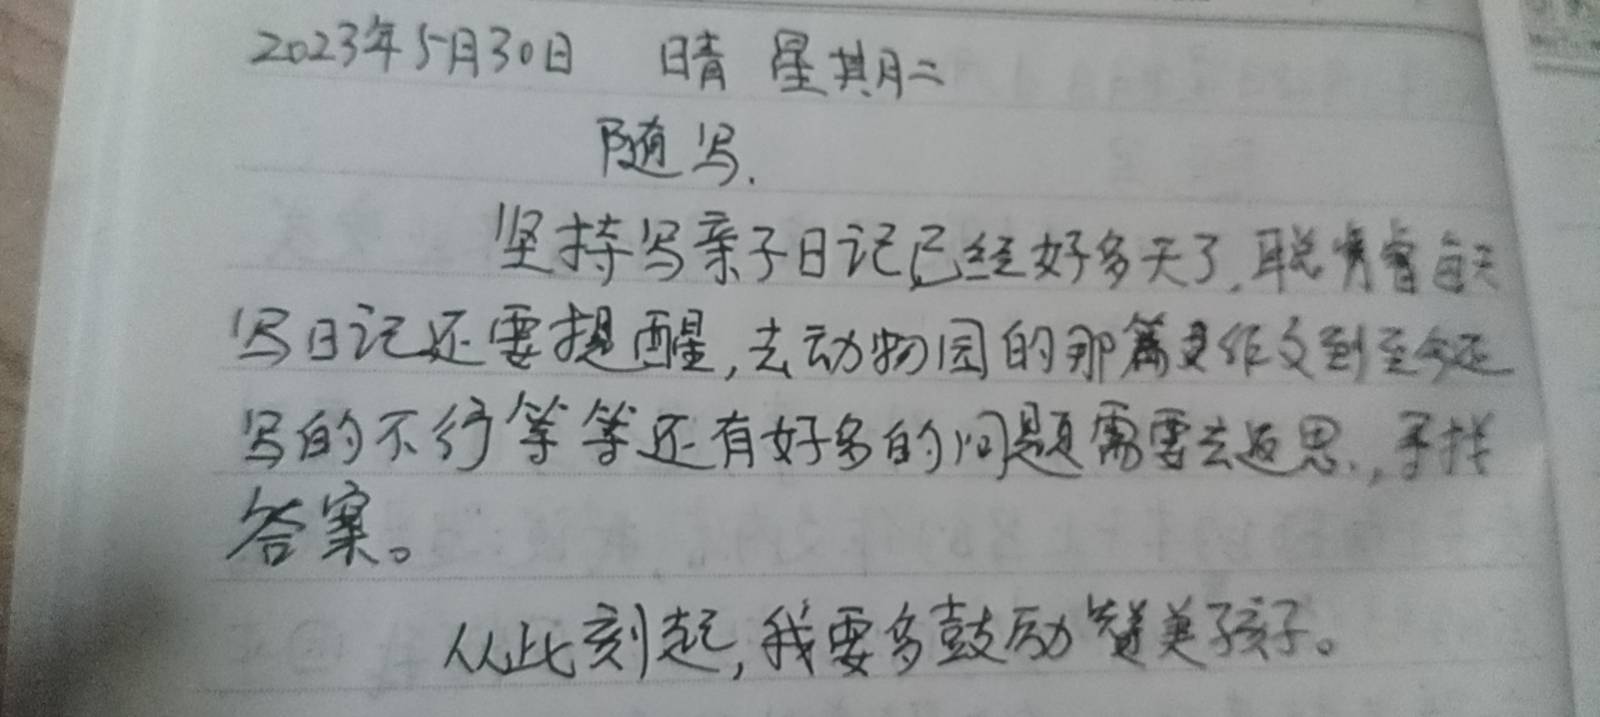 2023年5月30日 晴 星期二
随写.
坚持写亲子日记已经好多天了,聪睿每天
写日记还要提醒,去动物园的那篇作文到至今还
写的不行等等还有好多的问题需要去返思,寻找
答案。
从此刻起,我要多鼓励赞美孩子。